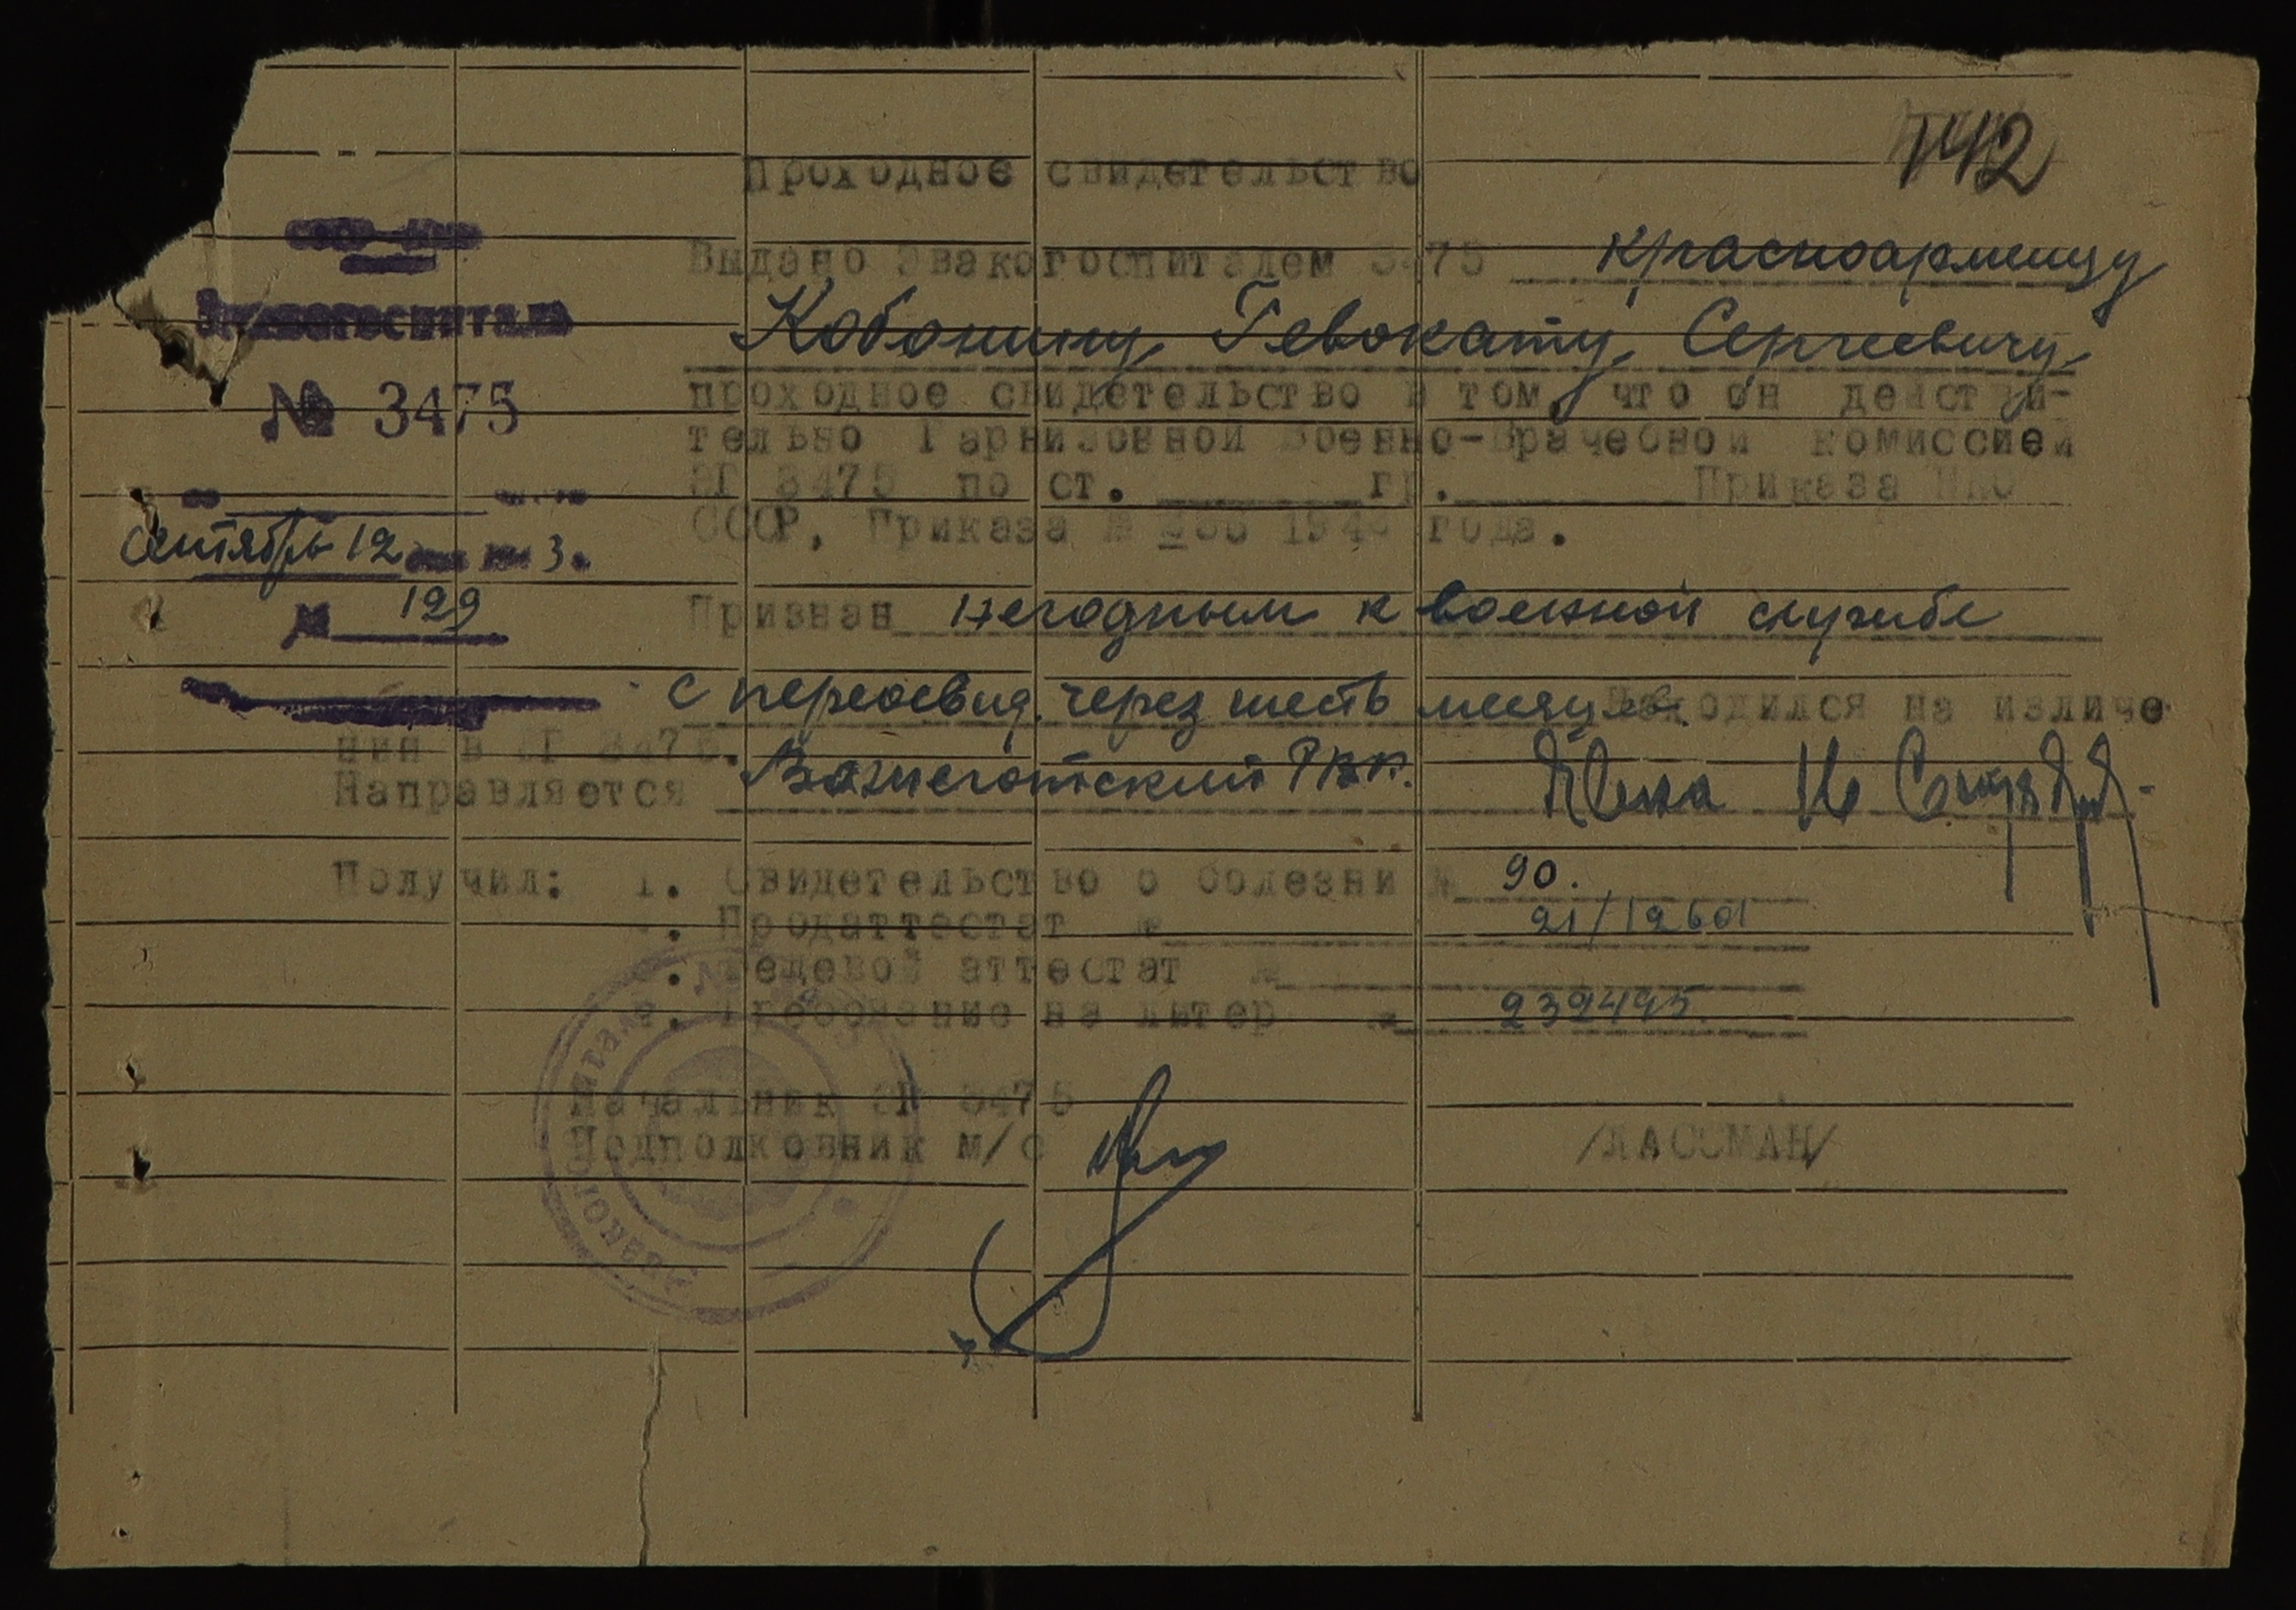 142
Проходное свидетельство
Эвакогоспиталь
№ 3475
Сентябрь 12 3.
№ 129
Выдано Эвакогоспиталем 3475 красноармейцу
Кобонину Гевокату Сергеевичу
проходное свидетельство в том, что он действи-
тельно Гарнизонной Военно-Врачебной комиссией
ЭГ 3475 по ст. гр. Приказа НКО
СССР, Приказа № 1942 года.
Признан негодным к военной службе
с переосвид. через шесть месяцев. Находился на излече
нии в ЭГ 3475.
Направляется Вожегодский РВК.
Получил: 1. Свидетельство о болезни № 90.
. Продаттестат № 21/12601
. аттестат №
. Требование на литер № 239495.
Начальник ЭГ 3475
Подполковник м/с /ЛАССМАН/